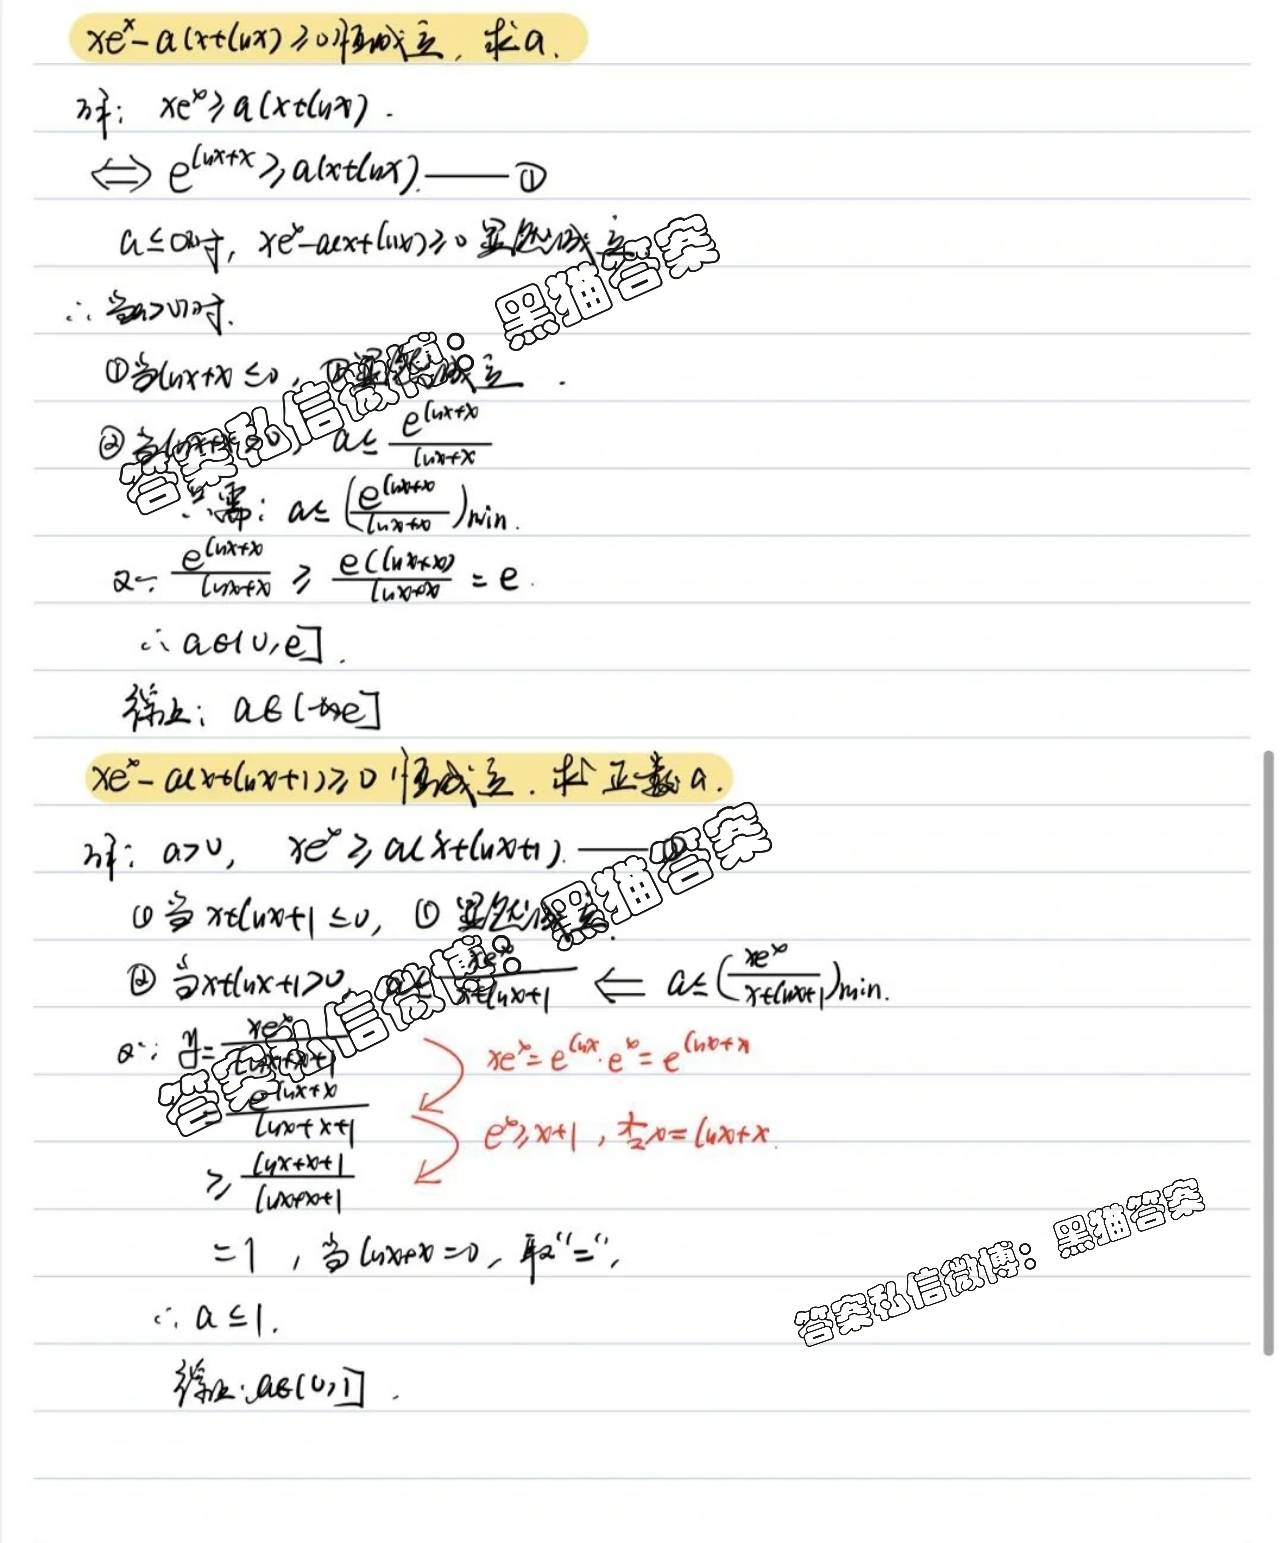 xeˣ-a(x+lnx)≥0恒成立, 求a.
解: xeˣ≥a(x+lnx).
⇔ e^(lnx+x)≥a(x+lnx) ——①
a≤0时, xeˣ-a(x+lnx)≥0显然成立
∴当a>0时.
①当lnx+x≤0, ①显然成立.
②当lnx+x>0, a≤ e^(lnx+x)/(lnx+x)
只需: a≤(e^(lnx+x)/(lnx+x))min.
又∵ e^(lnx+x)/(lnx+x) ≥ e(lnx+x)/(lnx+x) = e.
∴a∈(0,e].
综上: a∈(-∞,e]
xeˣ-a(x+lnx+1)≥0恒成立. 求正数a.
解: a>0, xeˣ≥a(x+lnx+1). ——①
①当x+lnx+1≤0, ①显然成立.
②当x+lnx+1>0, a≤ xeˣ/(x+lnx+1) ⇐ a≤(xeˣ/(x+lnx+1))min.
又∵ y= xeˣ/(lnx+x+1)
xeˣ=e^(lnx)·eˣ=e^(lnx+x)
= e^(lnx+x)/(lnx+x+1)
eˣ≥x+1, 令x=lnx+x.
≥ (lnx+x+1)/(lnx+x+1)
=1, 当lnx+x=0, 取"=",
∴a≤1.
综上: a∈(0,1].
答案私信微博：黑猫答案
答案私信微博：黑猫答案
答案私信微博：黑猫答案